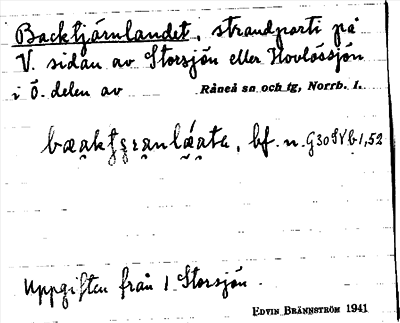 Backtjärnlandet, strandparti på
V. sidan av Storsjön eller Hovlössjön
i Ö. delen av Råneå sn och tg, Norrb. l.
bf. n. G30SVb1,52
Uppgiften från 1 Storsjön.
EDVIN BRÄNNSTRÖM 1941